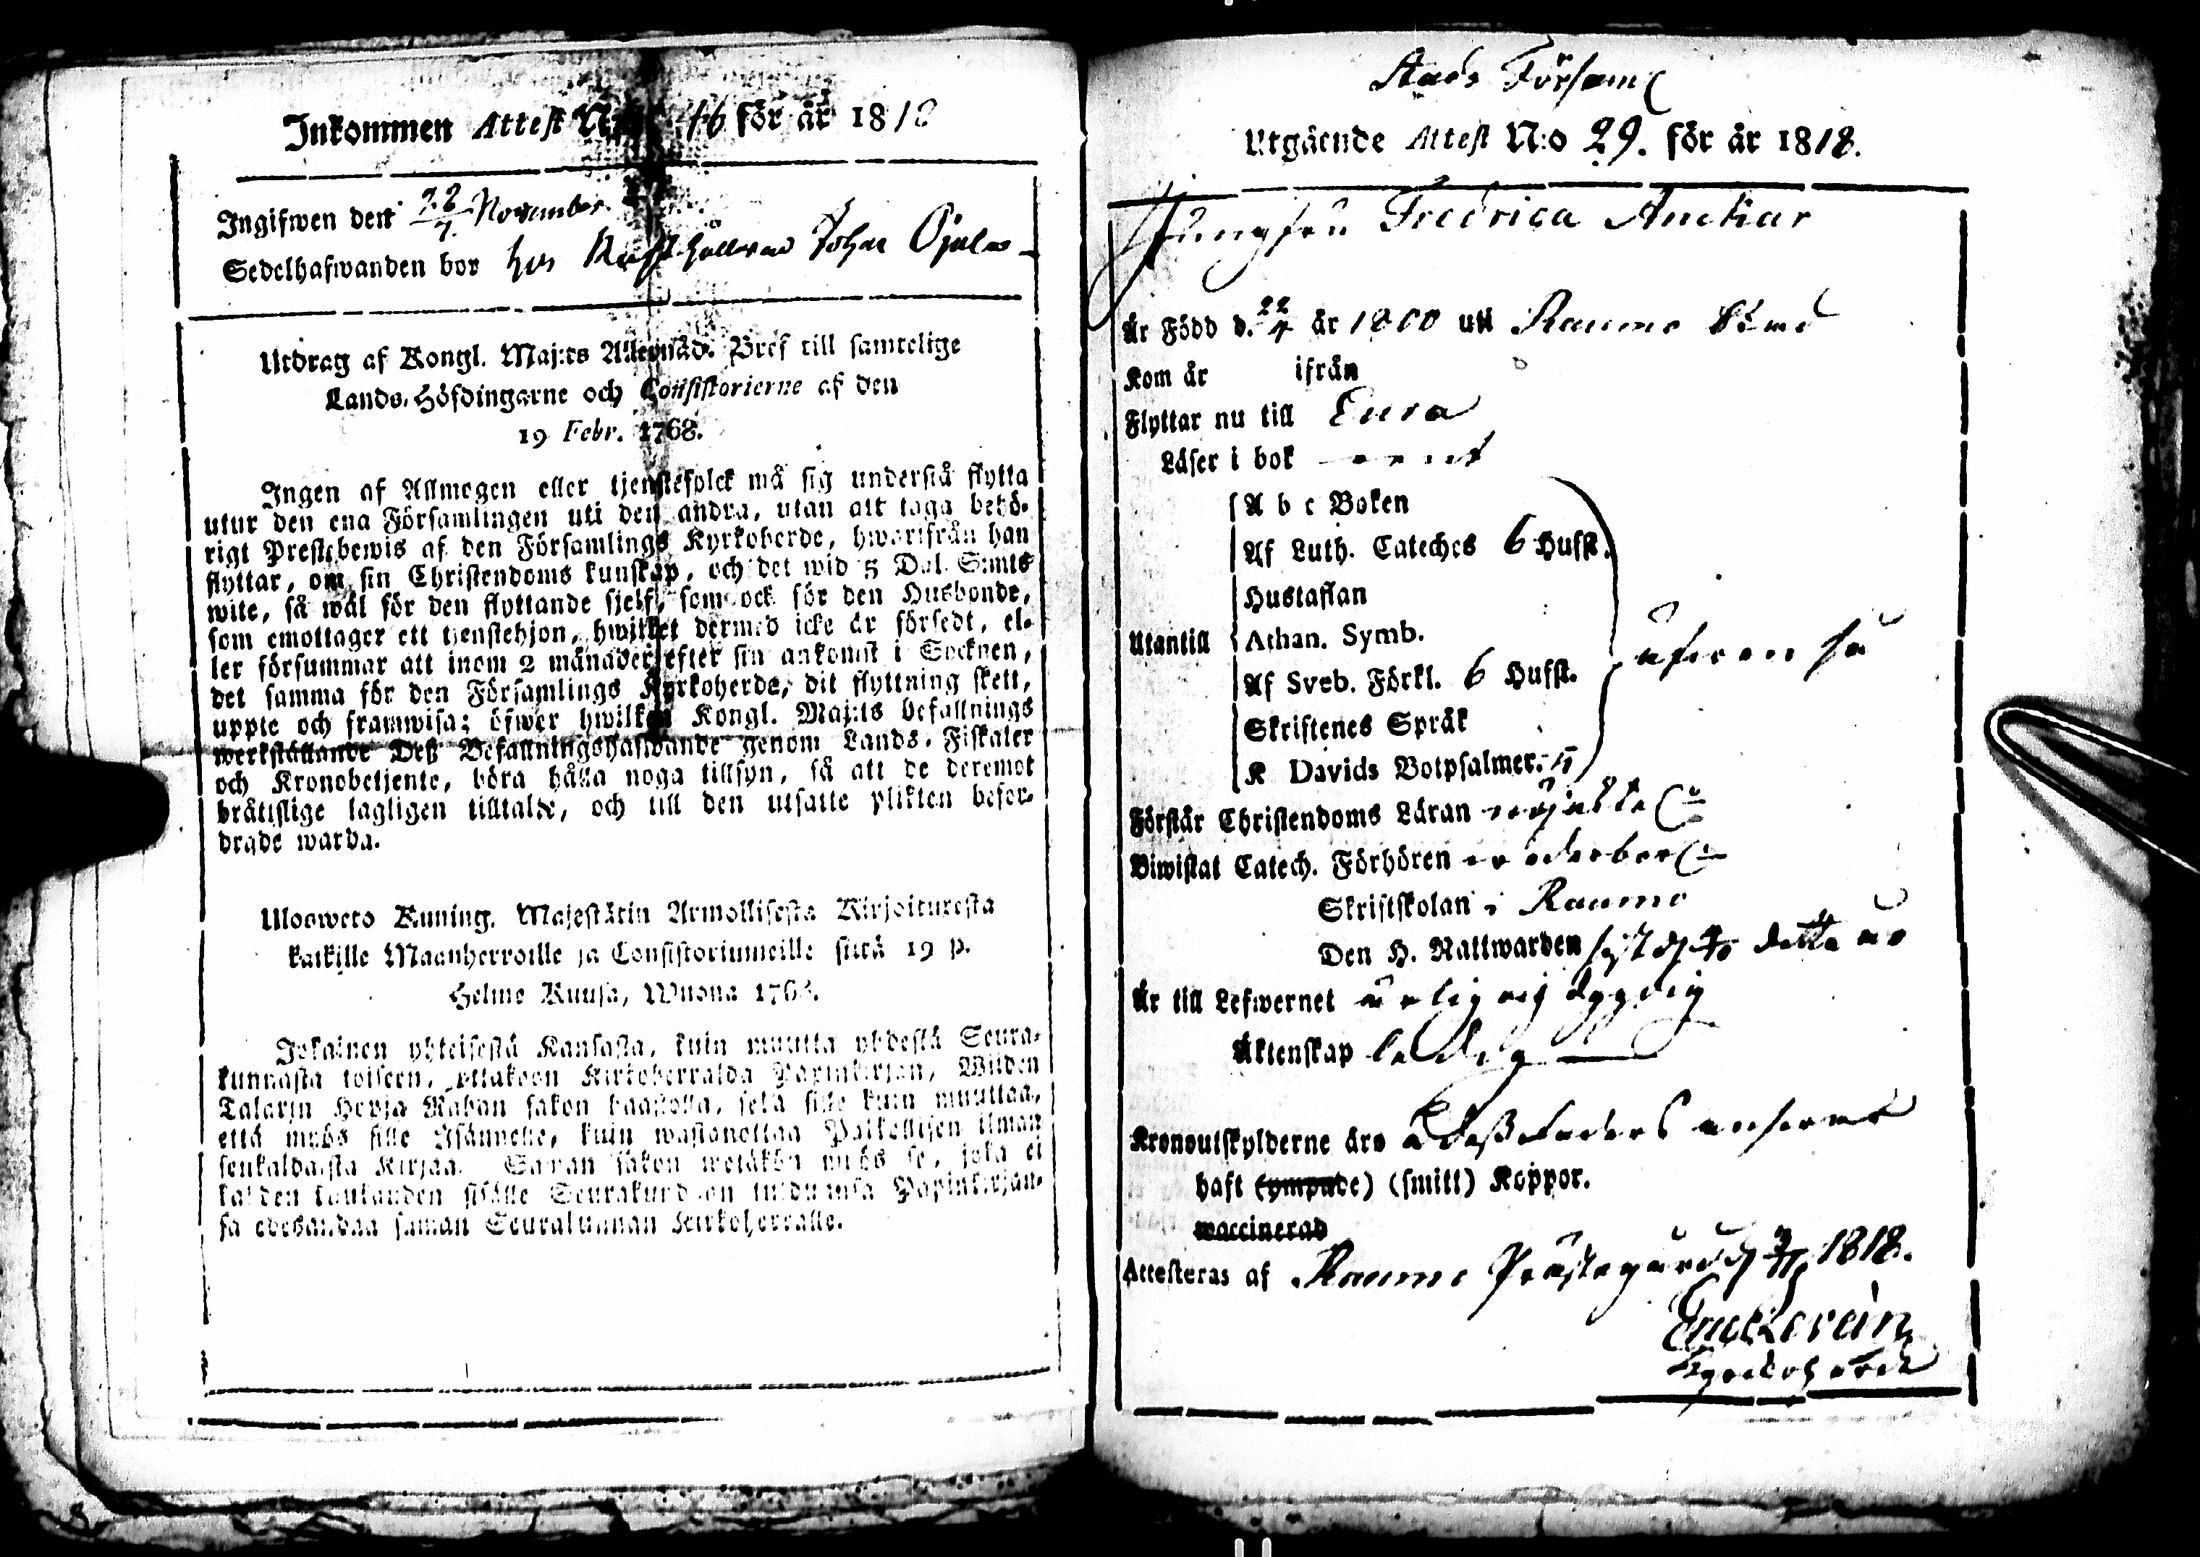 Inkommen Attest N:o 46 för år 1818
Ingifwen den 22 November
Sedelhafwanden bor hos Rusthållaren Johan
Utdrag af Kongl. Maj:ts Allernåd. Bref till samtelige
Lands-Höfdingarne och Consistorierne af den
19 Febr. 1768.
Ingen af Allmogen eller tjenstefolck må sig understå flytta
utur den ena Församlingen uti den andra, utan att taga behö-
rigt Prestebewis af den Församlings Kyrkoherde, hwartifrån han
flyttar, om sin Christendoms kunskap, och det wid 5 Dal. S:mts
wite, så wäl för den flyttande sjelf, som ock för den Husbonde,
som emottager ett tjenstehjon, hwilket dermed icke är försedt, el-
ler försummar att inom 2 månader efter sin ankomst i Socknen,
det samma för den Församlings Kyrkoherde, dit flyttning skett,
uppte och framwisa; öfwer hwilken Kongl. Maj:ts befallnings
werkställande Deß Befallningshafwande genom Lands-Fiskaler
och Kronobetjente, böra hålla noga tillsyn, så att de deremot
brätislige lagligen tilltalde, och till den utsatte plikten befor-
drade warda.
Uloswero Kuning. Majestätin Armollisesta Kirjoituxesta
kaikille Maanherroille ja Consistoriumeille siitä 19 p.
Helme Kuusa, Wuona 1768.
Jokainen yhteisestä Kansasta, kuin muutta yhdestä Seura-
kunnasta toiseen, ottakoon Kirkoherralda Papinkirjan, Wiiden
Talarin Hopja Rahan sakon haastolla, sekä sille kuin muuttaa,
että myös sille Isännelle, kuin wastanottaa Palkollisen ilman
senkaldaista Kirjaa. Saman sakon wetäkön myös se, joka ei
kahden kuukauden sisälle Seurakundaan tulduansa Papinkirjan-
sa edesandaa saman Seurakunnan Kirkoherralle.
Stads Församl
Utgående Attest N:o 29. för år 1818.
Jungfru Fredrica Anckar
Är Född d. 22/4 år 1800 uti Raumo Stad
Kom år ifrån
Flyttar nu till Eura
Läser i bok rent
A b c Boken
Af Luth. Cateches 6 Hufst.
Hustaflan
Utantill
Athan. Symb.
Af Sveb. Förkl. 6 Hufst.
Skriftenes Språk
K Davids Botpsalmer.
äfwen så
Förstår Christendoms Läran
Biwistat Catech. Förhören
Skriftskolan i Raumo
Den H. Nattwarden sist d detta år
Är till Lefwernet ärlig och dygdig
Äktenskap ledig
Kronoutskylderne äro
haft (ympade) (smitt) Koppor.
waccinerad
Attesteras af Raumo Prästegård d 1818.
Kyrckoherde